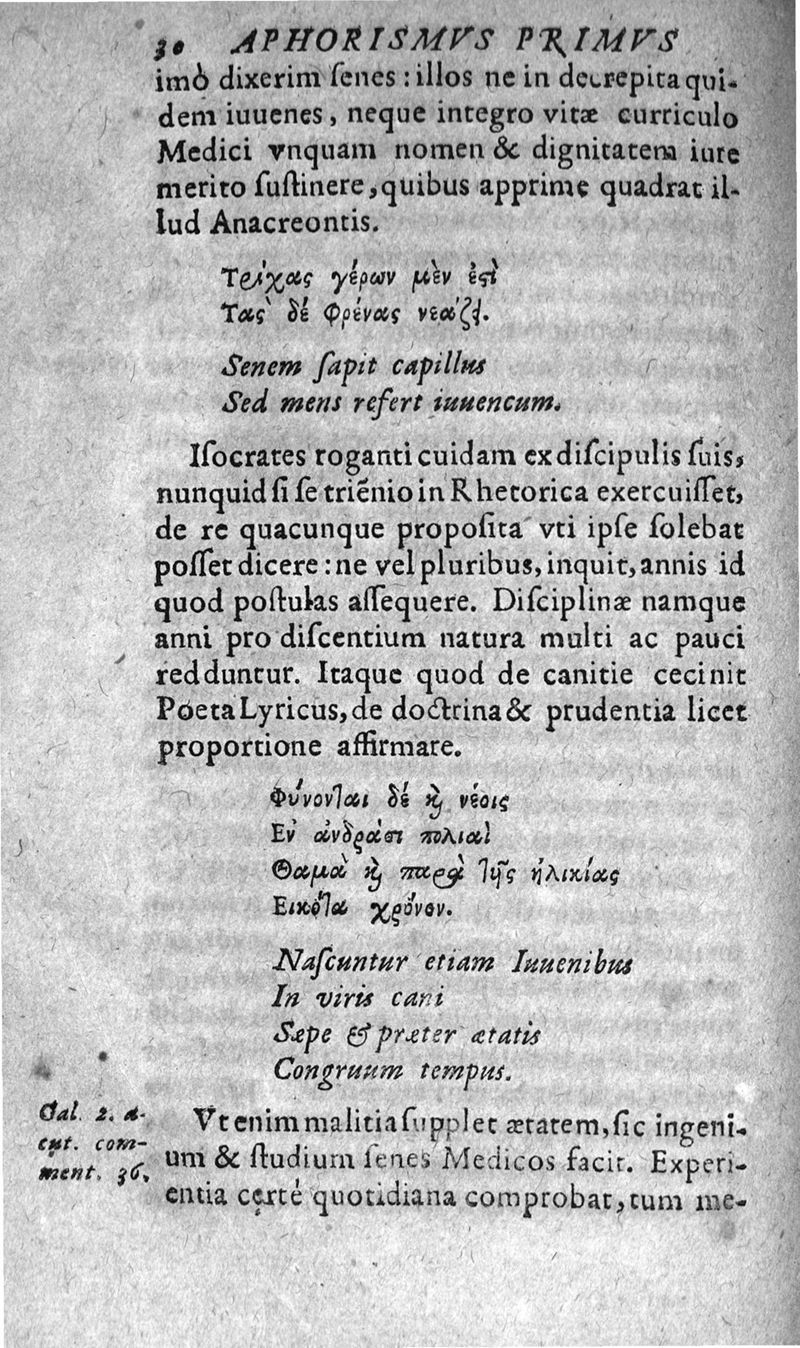 30 APHORISMVS PRIMVS
imò dixerim ſenes : illos ne in decrepita qui-
dem iuuenes, neque integro vitæ curriculo
Medici vnquam nomen & dignitatem iure
merito ſuſtinere, quibus apprime quadrat il-
lud Anacreontis.
Τρίχας γέρων μὲν ἐστὶ
Τὰς δέ φρένας νεάζει.
Senem ſapit capillus
Sed mens refert iuuencum.
Iſocrates roganti cuidam ex diſcipulis ſuis,
nunquid ſi ſe triēnio in Rhetorica exercuiſſet,
de re quacunque propoſita vti ipſe ſolebat
poſſet dicere : ne vel pluribus, inquit, annis id
quod poſtulas aſſequere. Diſciplinæ namque
anni pro diſcentium natura multi ac pauci
redduntur. Itaque quod de canitie cecinit
Poeta Lyricus, de doctrina & prudentia licet
proportione affirmare.
Φύνονται δέ ϗ νέοις
Εν ἀνδράσι πολιαὶ
Θαμὰ ϗ παρὰ τῆς ἡλικίας
Εικότα χρόνον.
Naſcuntur etiam Iuuenibus
In viris cani
Sæpe & præter ætatis
Congruum tempus.
Gal. 2. a-
cut. com-
ment. 36.
Vt enim malitia ſupplet ætatem, ſic ingeni-
um & ſtudium ſenes Medicos facit. Experi-
entia certé quotidiana comprobat, tum me-